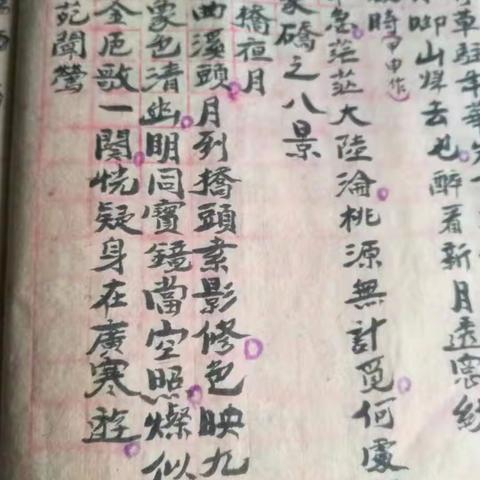 草駐牛
山去也醉看新月透窓紗
時甲申作
急茫茫大陸淪桃源無計覓何處
家礄之八景
橋桓月
曲溪頭月列橋頭素影修色映九
蒙色清幽明同寶鏡當空照燦似
金卮歌一闋恍疑身在廣寒遊
苑聞鶯